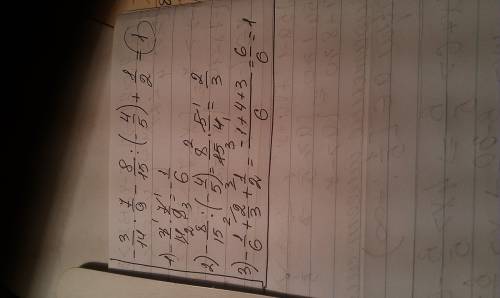 -3/14 · 7/9 - 8/15 : (-4/5) + 1/2 = 1
1) -3/14 · 7/9 = -1/6
2) -8/15 : (-4/5) = 8/15 · 5/4 = 2/3
3) -1/6 + 2/3 + 1/2 = (-1+4+3)/6 = 6/6 = 1